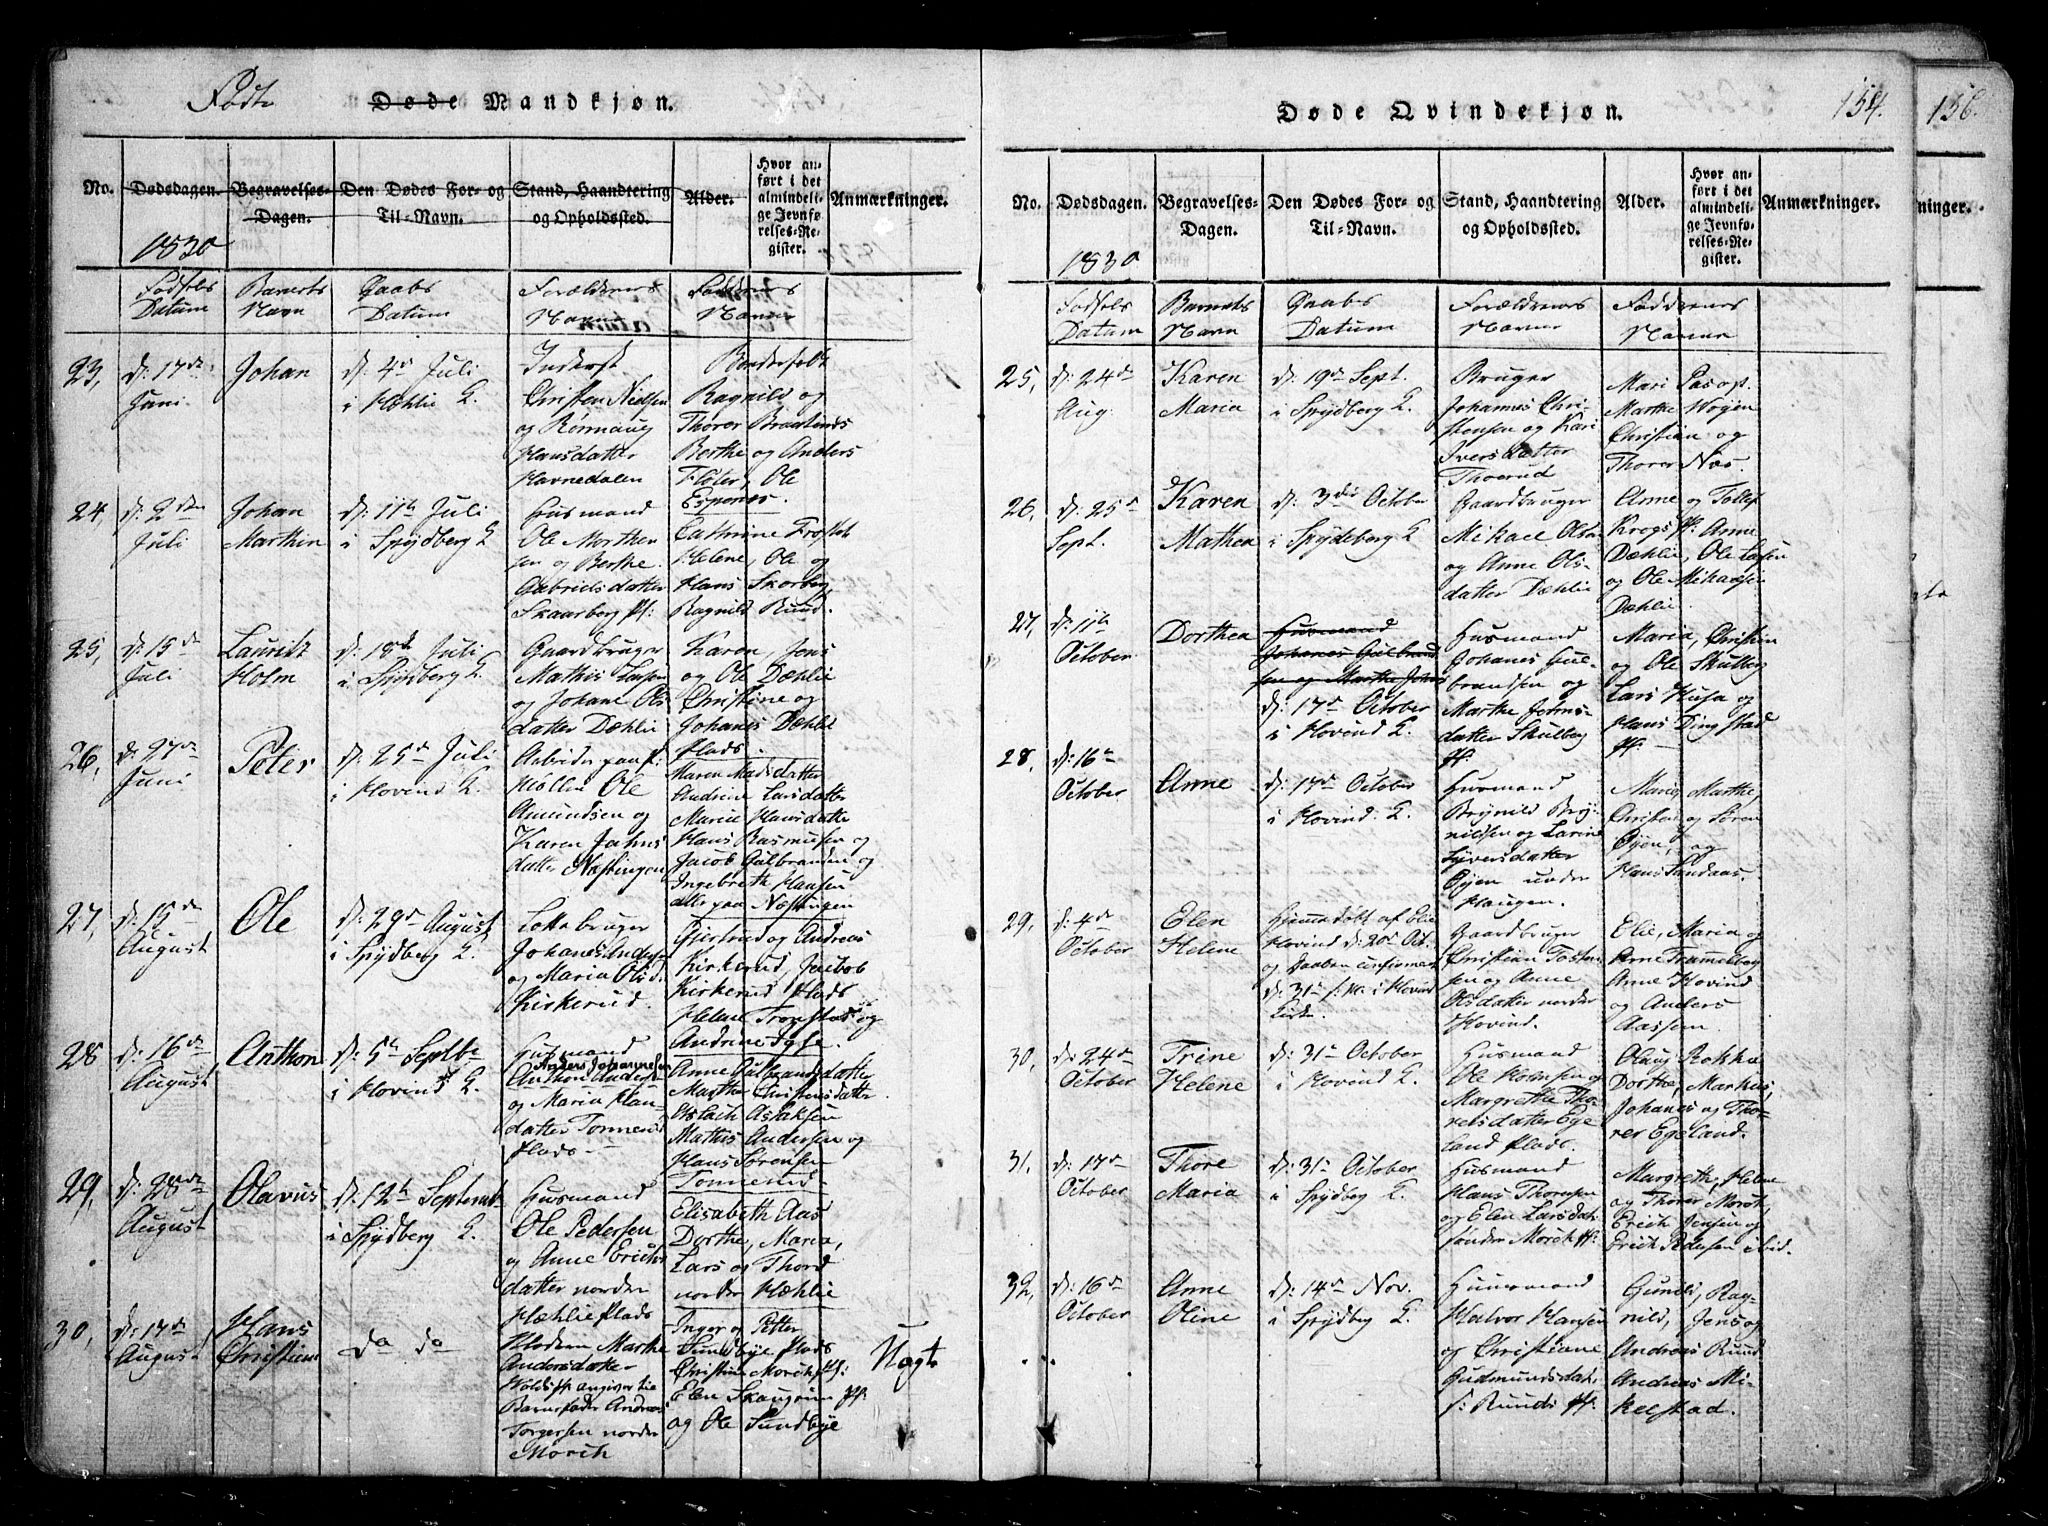 Födte Døde Mandkjøn.
No. Dødsdagen. Begravelses-Dagen. Den Dødes For- og Til-Navn. Stand, Haandtering og Opholdssted. Alder. Hvor anført i det almindelige Jevnførelses-Register. Anmærkninger.
1830
Födsels Datum
Barnets Navn
Daabs Datum
Forældrenes Navne
Faddernes Navne
23, d: 17de Juni
Johan
d: 4de Juli
i Hæhlie K.
Inderst
Christen Nielsen
og Rönnaug
Hansdatter
Havnedalen
Ragnild og
Thorer Braatenes
Berthe og Anders
Flöter, Ole
Espenes.
24, d: 2den Juli
Johan
Marthin
d: 11te Juli
i Spydberg K
Husmand
Ole Morthen
sen og Berthe
Gabrielsdatter
Skaarberg pf:
Cathrine
Helene, Ole og
Hans Skorberg
Ragnild Rund.
25, d: 15de Juli
Lauritz
Holm
d: 18de Juli
i Spydberg K.
Gaardbruger
Mathis Larsen
og Johane Ols
datter Dæhlie
Karen Jens
og Ole Dæhlie
Christine og
Johanes Dæhlie
Plads.
26, d: 27de Juni
Peter
d: 25de Juli
i Hovind K.
Arbeider paa
Möllen Ole
Amundsen og
Karen Johns
datter Næstingen
Maren Madsdatter
Andrine Larsdatter
Marie Hansdatter
Hans Rasmusen og
Jacob Gulbrandsen og
Ingebreth Hansen
alle paa Næstingen
27, d: 15de August
Ole
d: 29de August
i Spydberg K.
Johanes Andersen
og Maria Olsd.
Kirkerud.
Gjertrud og Andreas
Kirkerud, Jacob
Kirkerud Plads
Helene Tronstad og
Andrine
28 d: 16de August
Anthon
d: 5te Septbr
i Hovind K.
Husmand
Anders Johannesen
Anthon Anders
og Maria Han
datter Tonnerud
Plads
Anne Gulbrandsdatter
Marthe Christensdatter
Aslach Aslaksen
Mathis Andersen og
Hans Sörensen
Tonnerud
29, d: 28de August
Olavus
d: 12te Septembr
i Spydberg K.
Husmand
Ole Pedersen
og Anne Erichs
datter nordre
Hæhlie Plads
Elisabeth Aas
Dorthe, Maria,
Lars og Thord
nordre Hæhlie
30, d: 17de August
Hans
Christian
do do
Marthe
Andersdatter
angiver til
Barnefader Andreas
Torgersen nordre
Morch
Inger og Petter
Sundbye Plads
Christian Morch Pf:
Elen Skaugrim Pf.
og Ole Sundbye
Uægte
Døde Qvindekjøn.
154.
156.
ninger.
No. Dødsdagen. Begravelses-Dagen. Den Dødes For- og Til-Navn. Stand, Haandtering og Opholdssted. Alder. Hvor anført i det almindelige Jevnførelses-Register. Anmærkninger.
1830
Födsels Datum
Barnets Navn
Daabs Datum
Forældrenes Navne
Faddernes Navne
25, d: 24de Aug.
Karen
Maria
d: 19de Sept.
i Spydberg K.
Bruger
Johannes Chri-
stensen og Kari
Iversdatter
Thoerud
Mari
Marthe Wogen
Christian og
Thorer Næs.
26, d: 25de Sept.
Karen
Mathea
d: 3die October
i Spydeberg K
Gaardbruger
Mikael Olsen
og Anne Ols-
datter Dæhlie
Anne og Tollef
Krogs Pf: Anne
Dæhlie, Ole Larsen
og Ole Mikaelsen
Dæhlie.
27, d: 11te October
Dorthea
Husmand
Johanes Gulbrand
sen og Marthe Johns
d: 17de October
i Hovind K.
Husmand
Johanes Gul-
brandsen og
Marthe Johns-
datter Skulberg
Pf.
Maria, Christian
og Ole Skulberg
Lars Husa og
Hans Dingstad
Pf.
28, d: 16de October
Anne
d: 17de October
i Hovind K.
Husmand
Brynild Bry-
nildsen og Larine
Syversdatter
Öyen under
Haugen.
Maria, Marthe,
Christen og Sören
Öyen, og
Hans Sandaas.
29, d: 4de October
Elen
Helene
Hjemmedöbt af Elie
Hovind d: 20de Oct.
og Daaben confirmert
d: 31te i Hovind
Kirke.
Gaardbruger
Christian Tosten
sen og Anne
Olsdatter nordre
Hovind.
Elie, Maria og
Arne Frammelberg
Anne Hovind
og Anders
Aassem.
30, d: 24de October
Trine
Helene
d: 31te October
i Hovind K.
Husmand
Ole Holmsen og
Margrethe Tho-
relsdatter Ege
land Plads.
Olaug Rokke
Dorthe, Markus,
Johanes og Tho-
rer Egeland.
31, d: 17de October
Thore
Maria
d: 31te October
i Spydberg K.
Husmand
Hans Thoresen
og Elen Larsdat.
söndre Morch Pf.
Margrethe, Helene
og Thorer Morch,
Erich Jensen og
Erich Pedersen ibid.
32, d: 16de October
Anne
Oline
d: 14de Nov.
i Spydberg K.
Huusmand
Halvor Hansen
og Christiane
Gudmundsdat.
s: Runds Pf.
Gunild, Rag-
nild, Jens og
Andreas Rund
Andreas Mi-
kelstad.